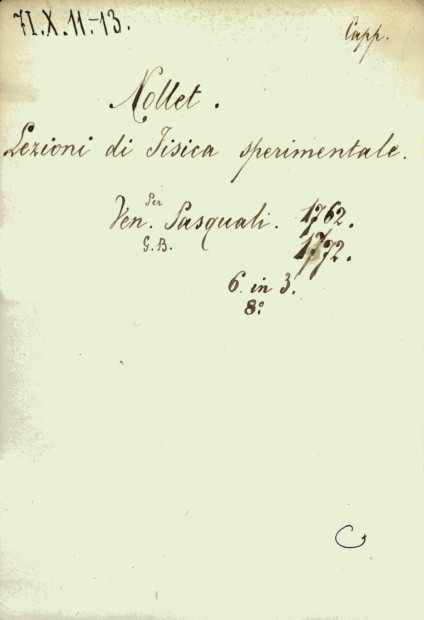 71.X.11.-13.
Capp.
Nollet.
Lezioni di Fisica sperimentale.
Per
Ven. Pasquali. 1762.
G.B. 1772.
6 in 3.
8º
C